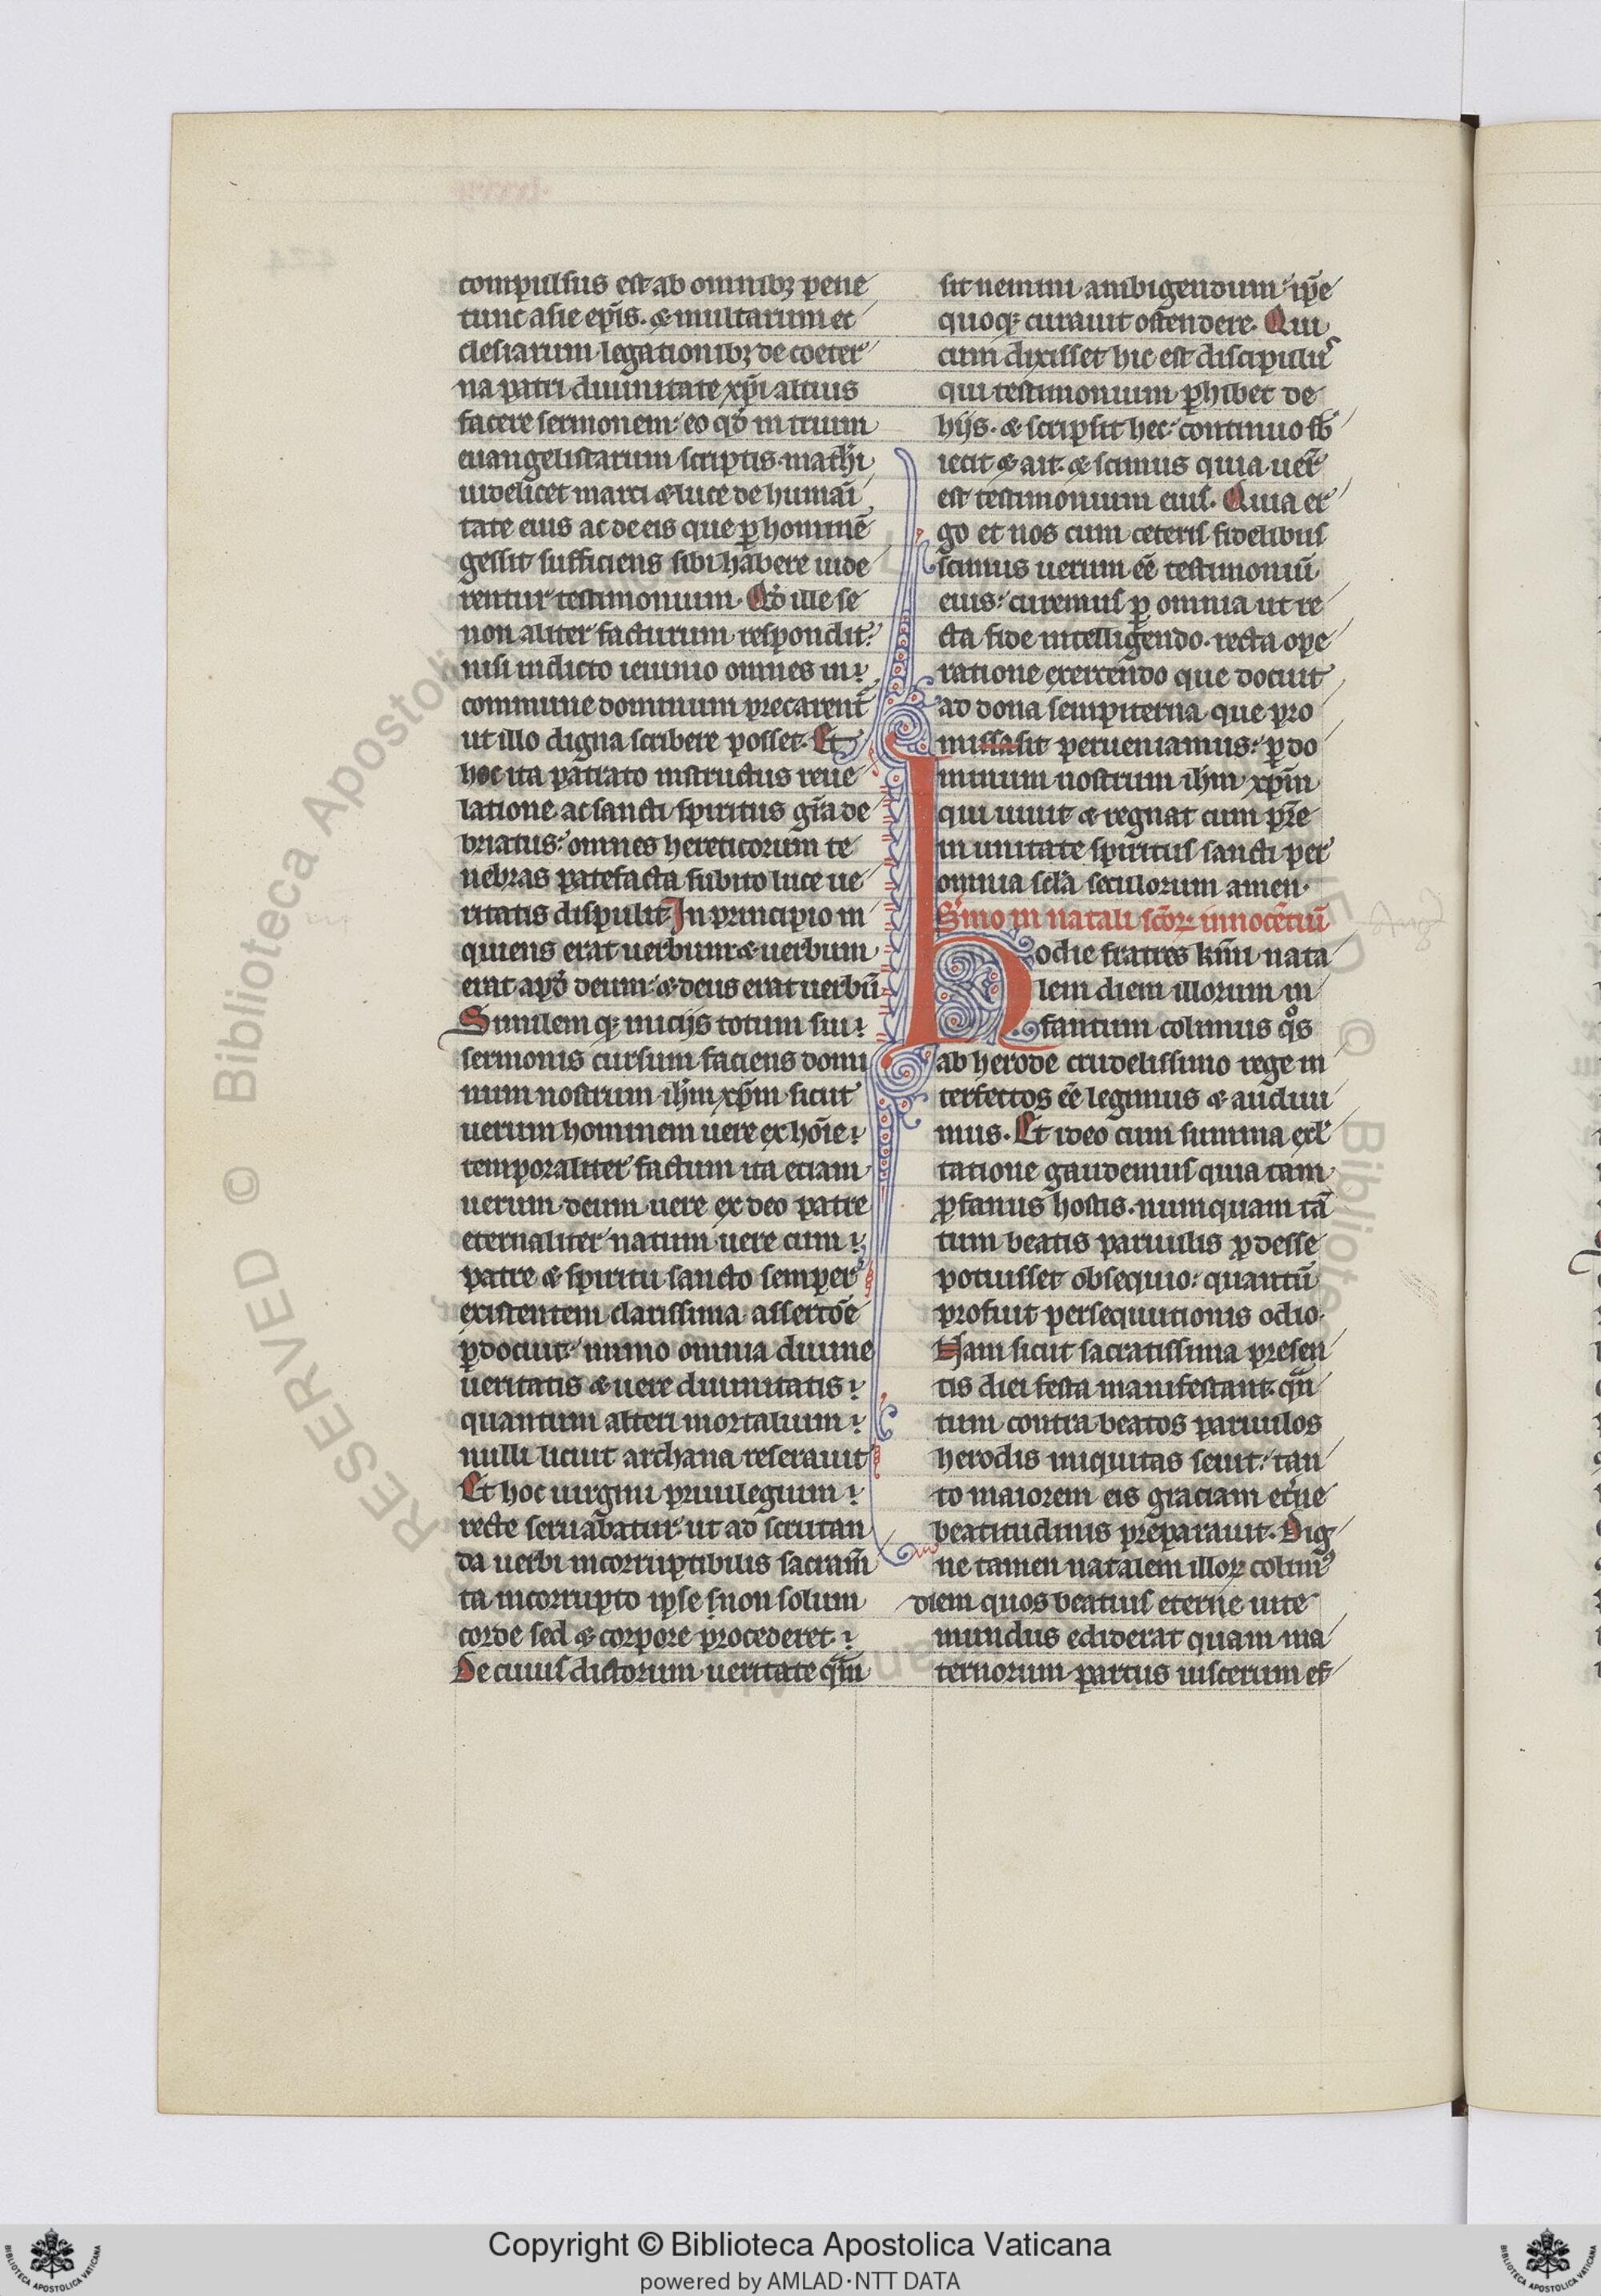 compulsus est ab omnibꝫ pene
tunc asie ep̄is. & multarum ec
clesiarum legationibꝫ de coeter
na patri diuinitate xp̄i altius
facere sermonem: eo qd̓ in trium
euangelistarum scriptis mathi
uidelicet marci & luce de humāi
tate eius ac de eis que ꝑ hominē
gessit sufficiens sibi habere uide
rentur testimonium. Qd̓ ille se
non aliter facturum respondit:
nisi indicto ieiunio omnes in
commune dominum precarent̄
ut illo digna scribere posset. Et
hoc ita patrato instructus reue
latione ac sancti spiritus gr̄a de
briatus: omnes hereticorum te
nebras patefacta subito luce ue
ritatis dispulit. In principio in
quiens erat uerbum: & uerbum
erat apd̓ deum: & deus erat uerbū.
Similem qꝫ iniciis totum sui
sermonis cursum faciens domi
num nostrum ih̄m xp̄m sicut
uerum hominem uere ex hōie
temporaliter factum ita etiam
uerum deum uere ex deo patre
eternaliter natum uere cum
patre & spiritu sancto semper
existentem clarissima assertōe
ꝑdocuit: immo omnia diuine
ueritatis & uere diuinitatis
quantum alteri mortalium
nulli licuit archana reserauit
Et hoc uirgini priuilegium
recte seruabatur: ut ad scrutan
da uerbi incorruptibilis sacram̄
ta incorrupto ipse non solum
corde sed & corpore procederet.
De cuius dictorum ueritate qm̄
sit nemini ambigendum: ip̄e
quoqꝫ curauit ostendere. Qui
cum dixisset hic est discipulus
qui testimonium ꝑhibet de
hijs. & scripsit hec: continuo sb̓
iecit & ait. & scimus quia uer̄
est testimonium eius. Quia er
go et nos cum ceteris fidelibus
scimus uerum eē testimoniū
eius: curemus ꝑ omnia ut re
cta fide intelligendo. recta ope
ratione exercendo que docuit
ad dona sempiterna que pro
missasit perueniamus: ꝑ do
minum nostrum ih̄m xp̄m
qui uiuit & regnat cum pr̄e
in unitate spiritus sancti per
omnia scl̄a seculorum amen.
Sermo in natali sc̄oꝝ innocētiū
Hodie fratres kmi nata
lem diem illorum in
fantum colimus qͦs
ab herode crudelissimo rege in
terfectos eē legimus & audiui
mus. Et ideo cum summa exl̓
tatione gaudemus quia tam
ꝓfanus hostis. numquam tā
tum beatis paruulis ꝓdesse
potuisset obsequio: quantū
profuit persequutionis odio.
Nam sicut sacratissima presen
tis diei festa manifestant. qn̄
tum contra beatos paruulos
herodis iniquitas seuit: tan
to maiorem eis graciam et̓ne
beatitudinis preparauit. Dig
ne tamen natalem illoꝝ colimꝰ
diem quos beatius eterne uite
mundus ediderat quam ma
ternorum partus uiscerum ef
Copyright © Biblioteca Apostolica Vaticana
powered by AMLAD·NTT DATA